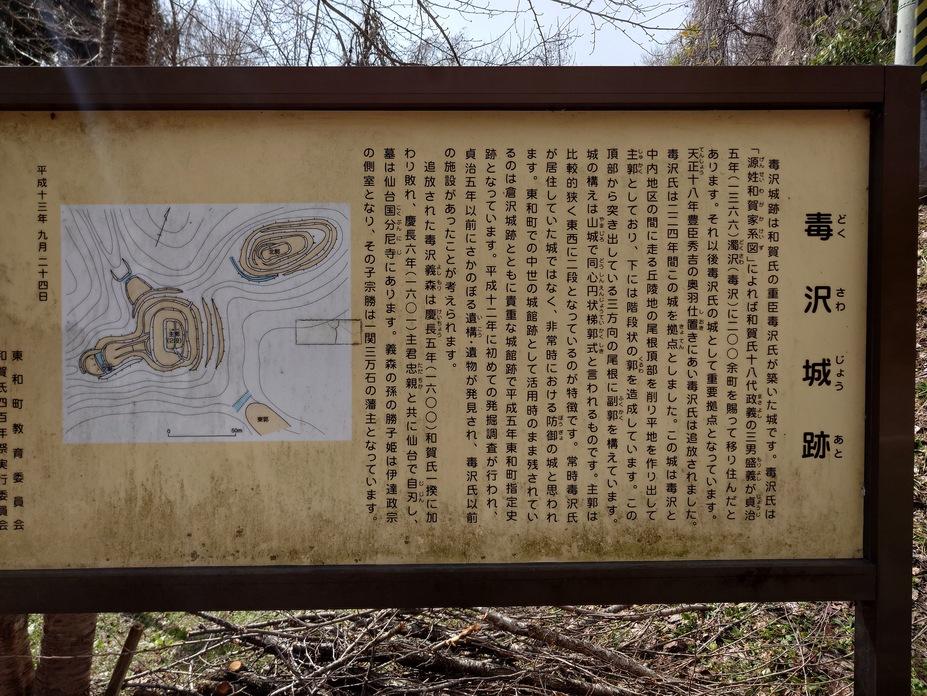 毒沢城跡
どく さわ じょう あと
毒沢城跡は和賀氏の重臣毒沢氏が築いた城です。毒沢氏は
「源姓和賀家系図」によれば和賀氏十八代政義の三男盛義が貞治
五年（一三六六）濁沢（毒沢）に二〇〇余町を賜って移り住んだと
あります。それ以後毒沢氏の城として重要拠点となっています。
天正十八年豊臣秀吉の奥羽仕置きにあい毒沢氏は追放されました。
毒沢氏は二二四年間この城を拠点としました。この城は毒沢と
中内地区の間に走る丘陵地の尾根頂部を削り平地を作り出して
主郭としており、下には階段状の郭を造成しています。この
頂部から突き出している三方向の尾根に副郭を構えています。
城の構えは山城で同心円状梯郭式と言われるものです。主郭は
比較的狭く東西に二段となっているのが特徴です。常時毒沢氏
が居住していた城ではなく、非常時における防御の城と思われ
ます。東和町での中世の城館跡として活用時のまま残されてい
るのは倉沢城跡とともに貴重な城館跡で平成五年東和町指定史
跡となっています。平成十二年に初めての発掘調査が行われ、
貞治五年以前にさかのぼる遺構・遺物が発見され、毒沢氏以前
の施設があったことが考えられます。
追放された毒沢義森は慶長五年（一六〇〇）和賀氏一揆に加
わり敗れ、慶長六年（一六〇一）主君忠親と共に仙台で自刃し、
墓は仙台国分尼寺にあります。義森の孫の勝子姫は伊達政宗
の側室となり、その子宗勝は一関三万石の藩主となっています。
主郭
東郭
0 50m
平成十三年九月二十四日
東和町教育委員会
和賀氏四百年祭実行委員会